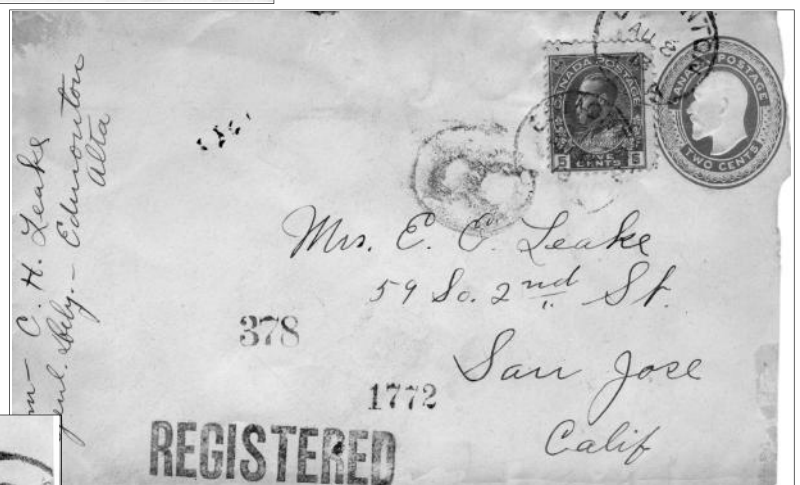 C. H. Leake
Genl. Dely. - Edmonton
Alta
CANADA POSTAGE
5 FIVE 5
CENTS
CANADA POSTAGE
TWO CENTS
R
Mrs. E. E. Leake
59 So. 2nd St.
San Jose
Calif
378
1772
REGISTERED